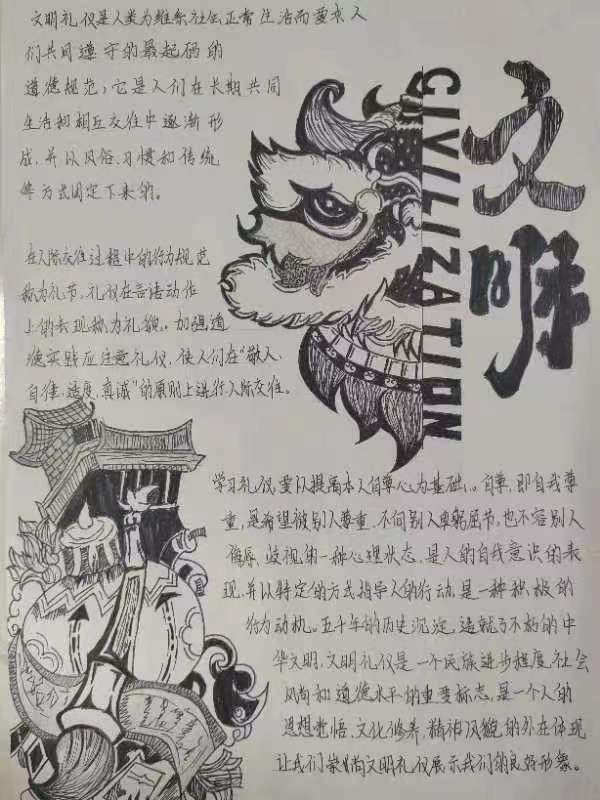 文明礼仪是人类为维系社会正常生活而要求人
们共同遵守的最起码的
道德规范，它是人们在长期共同
生活和相互交往中逐渐形
成，并以风俗、习惯和传统
等方式固定下来的。
在人际交往过程中的行为规范
称为礼节，礼仪在言语动作
上的表现称为礼貌。加强道
德实践应注意礼仪，使人们在“敬人、
自律、适度、真诚”的原则上进行人际交往。
文明
CIVILIZATION
学习礼仪要以提高本人自尊心为基础。自尊，即自我尊
重，是希望被别人尊重，不向别人卑躬屈节，也不容别人
侮辱、歧视的一种心理状态，是人的自我意识的表
现，并以特定的方式指导人的行动，是一种积极的
行为动机。五千年的历史沉淀，造就了不朽的中
华文明，文明礼仪是一个民族进步程度、社会
风尚和道德水平的重要标志，是一个人的
思想觉悟、文化修养、精神风貌的外在体现
让我们崇尚文明礼仪展示我们的良好形象。